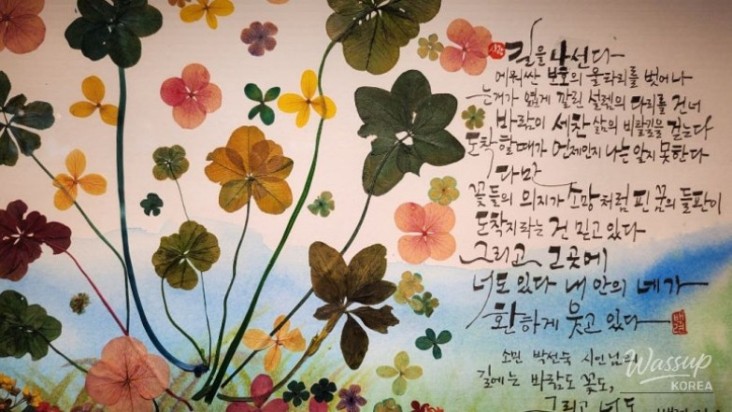 길을 나선다
에워싼 보호의 울타리를 벗어나
눈가가 엷게 깔린 설렘의 다리를 건너
바람이 세찬 삶의 비탈길을 걷는다
도착할 때가 언제인지 나는 알지 못한다
다만
꽃들의 의지가 소망처럼 핀 꿈의 들판이
도착지라는 건 믿고 있다
그리고 그곳에
너도 있다 내 안의 네가
환하게 웃고 있다
소민 박선숙 시인님의
길에는 바람도 꽃도,
그리고 너도
Wassup
KOREA